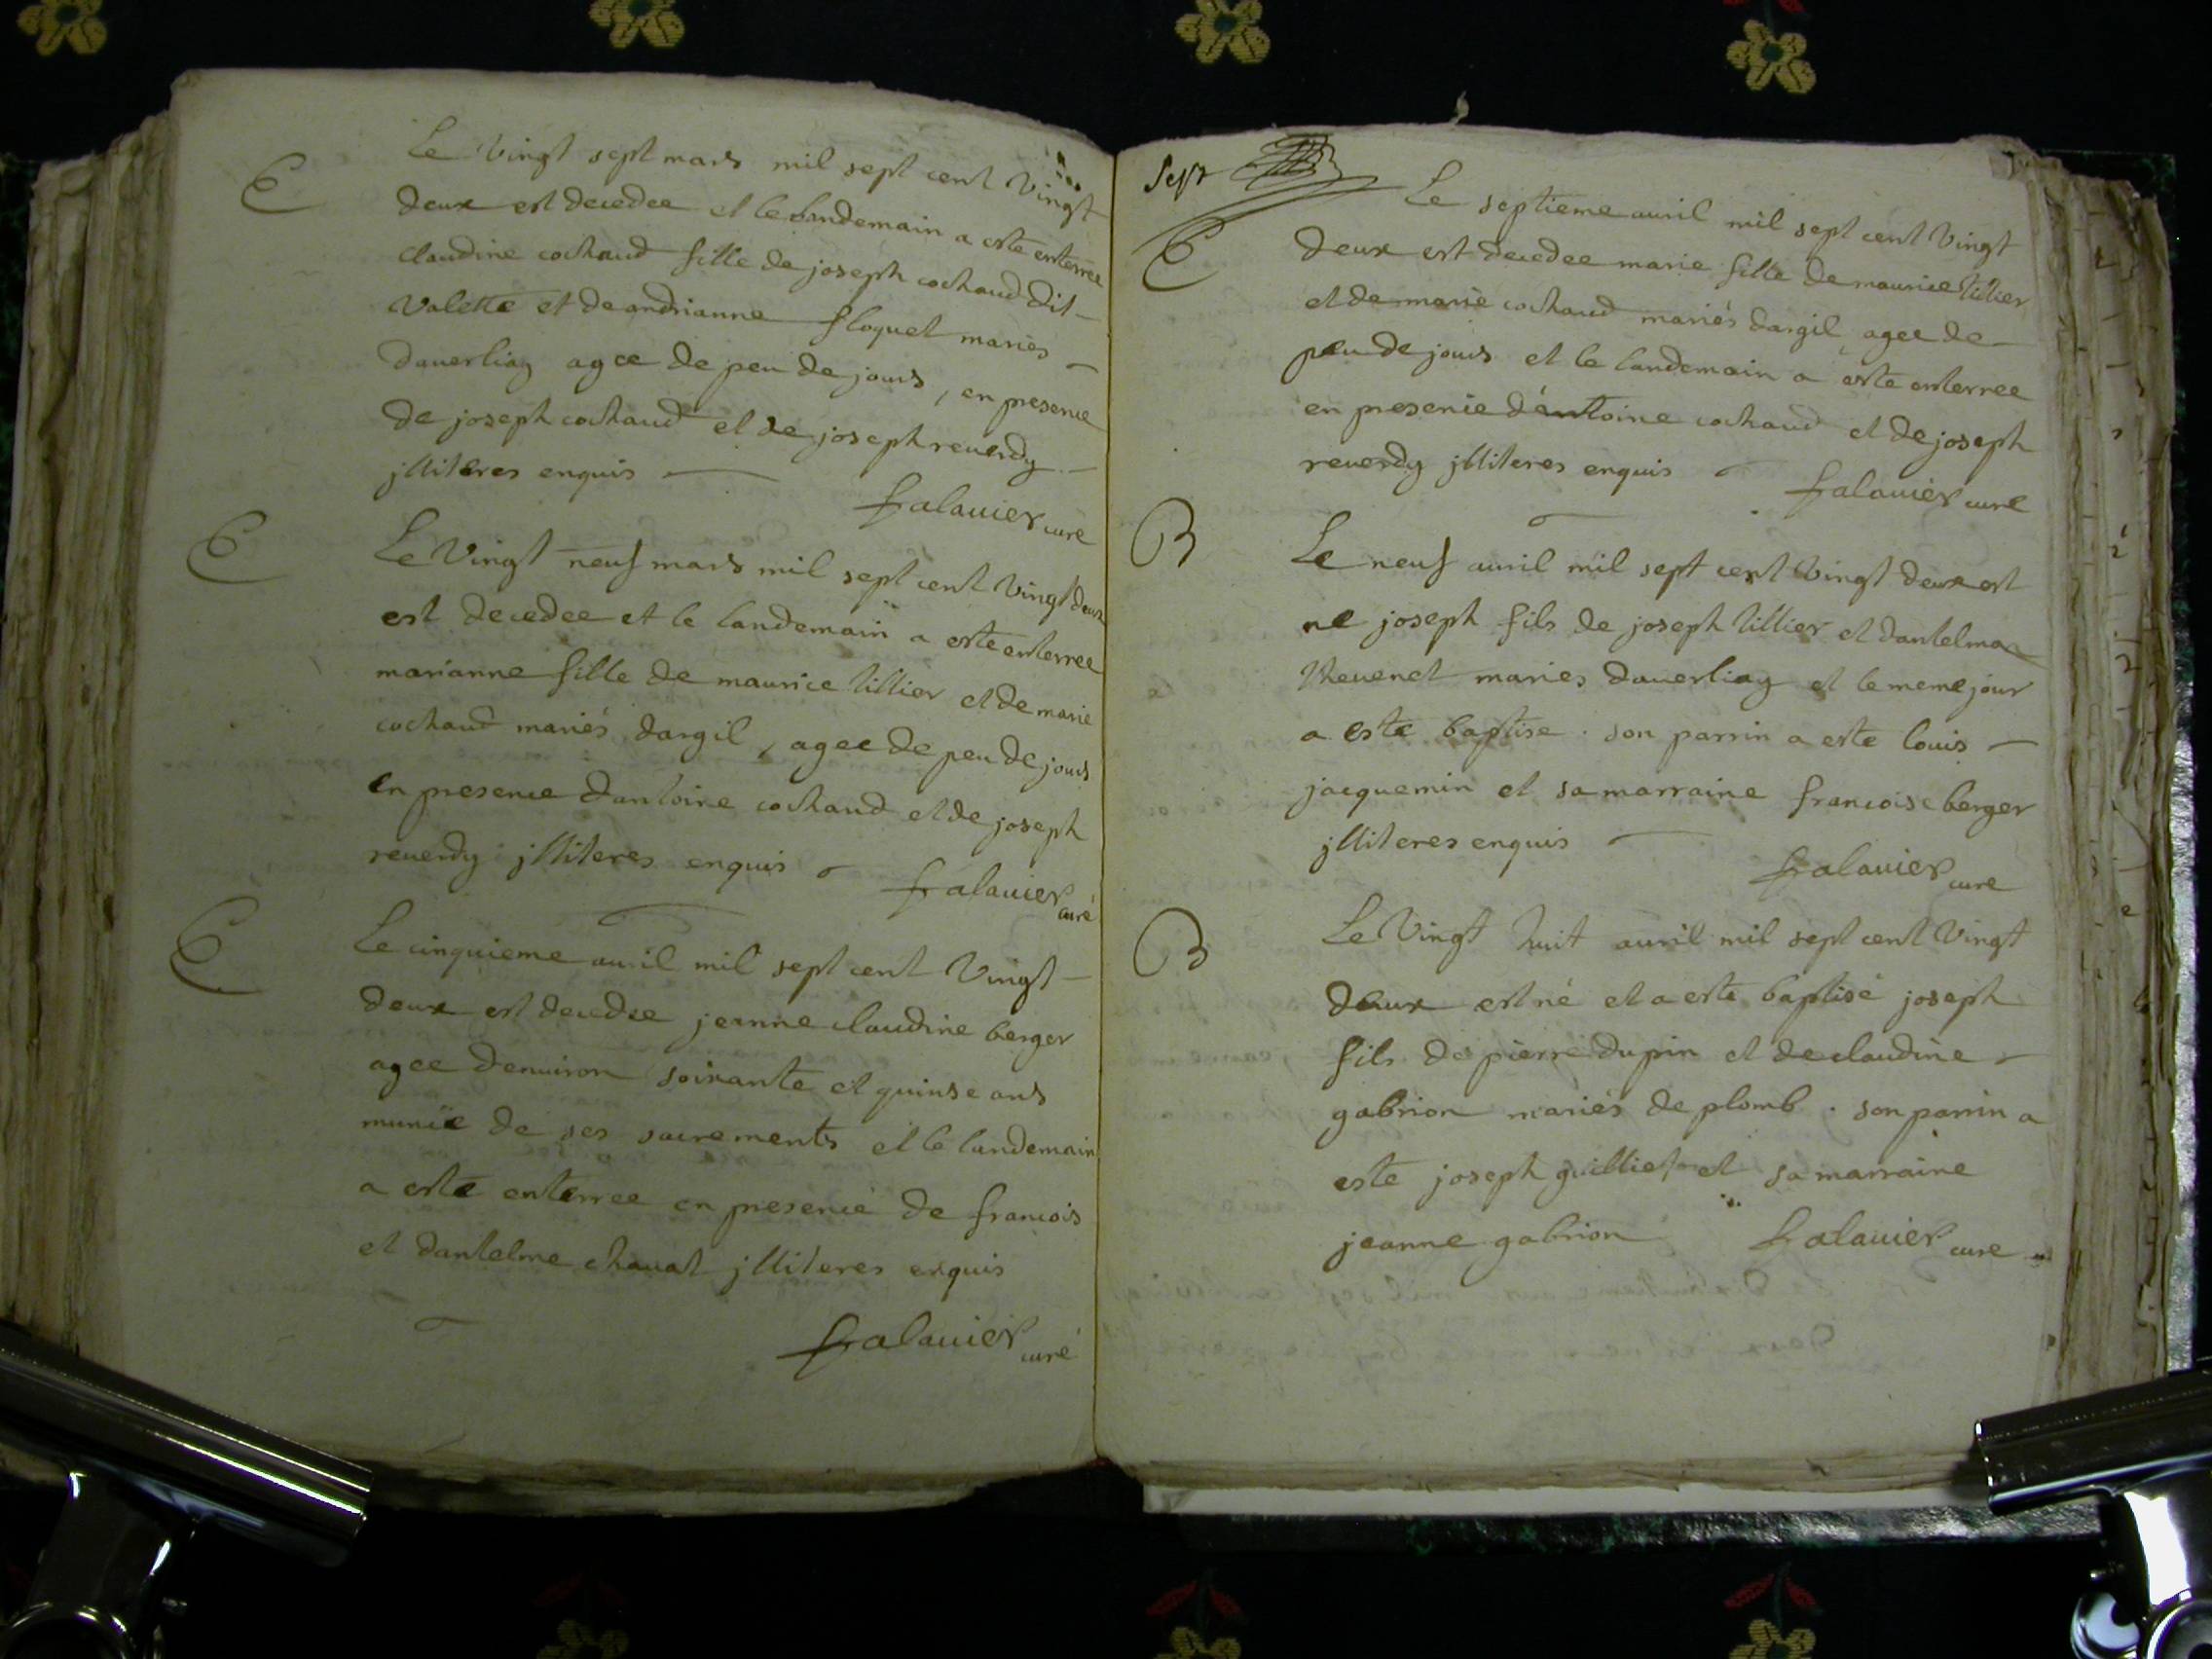 E
Le Vingt sept mars mil sept cent Vingt
deux est decedee et le landemain a este enterree
claudine cochaud fille de joseph cochaud dit
Valette et de andrianne floquet mariés
dauerliaz agee de peu de jours, en presence
de joseph cochaud et de joseph reuerdy
jlliteres enquis
falauier curé
E
Le Vingt neuf mars mil sept cent Vingt deux
est decedee et le landemain a este enterree
marianne fille de maurice tillier et de marie
cochaud mariés dargil, agee de peu de jours
en presence dantoine cochaud et de joseph
reuerdy jlliteres enquis
falauier curé
E
Le cinquieme auril mil sept cent Vingt
deux est decedee jeanne claudine berger
agee denuiron soixante et quinse ans
munie de ses sacrements et le landemain
a este enterree en presence de francois
et dantelme chauat jlliteres enquis
falauier curé
Sept
E
Le septieme auril mil sept cent Vingt
deux est decedee marie fille de maurice tillier
et de marie cochaud mariés dargil, agee de
peu de jours et le landemain a este enterree
en presence dantoine cochaud et de joseph
reuerdy jlliteres enquis
falauier curé
B
Le neuf auril mil sept cent Vingt deux est
ne joseph fils de joseph tillier et dantelma
theuenet mariés dauerliaz et le meme jour
a este baptise. son parrin a este louis
jacquemin et sa marraine francoise berger
jlliteres enquis
falauier cure
B
Le Vingt huit auril mil sept cent Vingt
deux est né et a este baptisé joseph
fils de pierre dupin et de claudine
gabrion mariés de plomb. son parrin a
este joseph guilliet et sa marraine
jeanne gabrion falauier cure